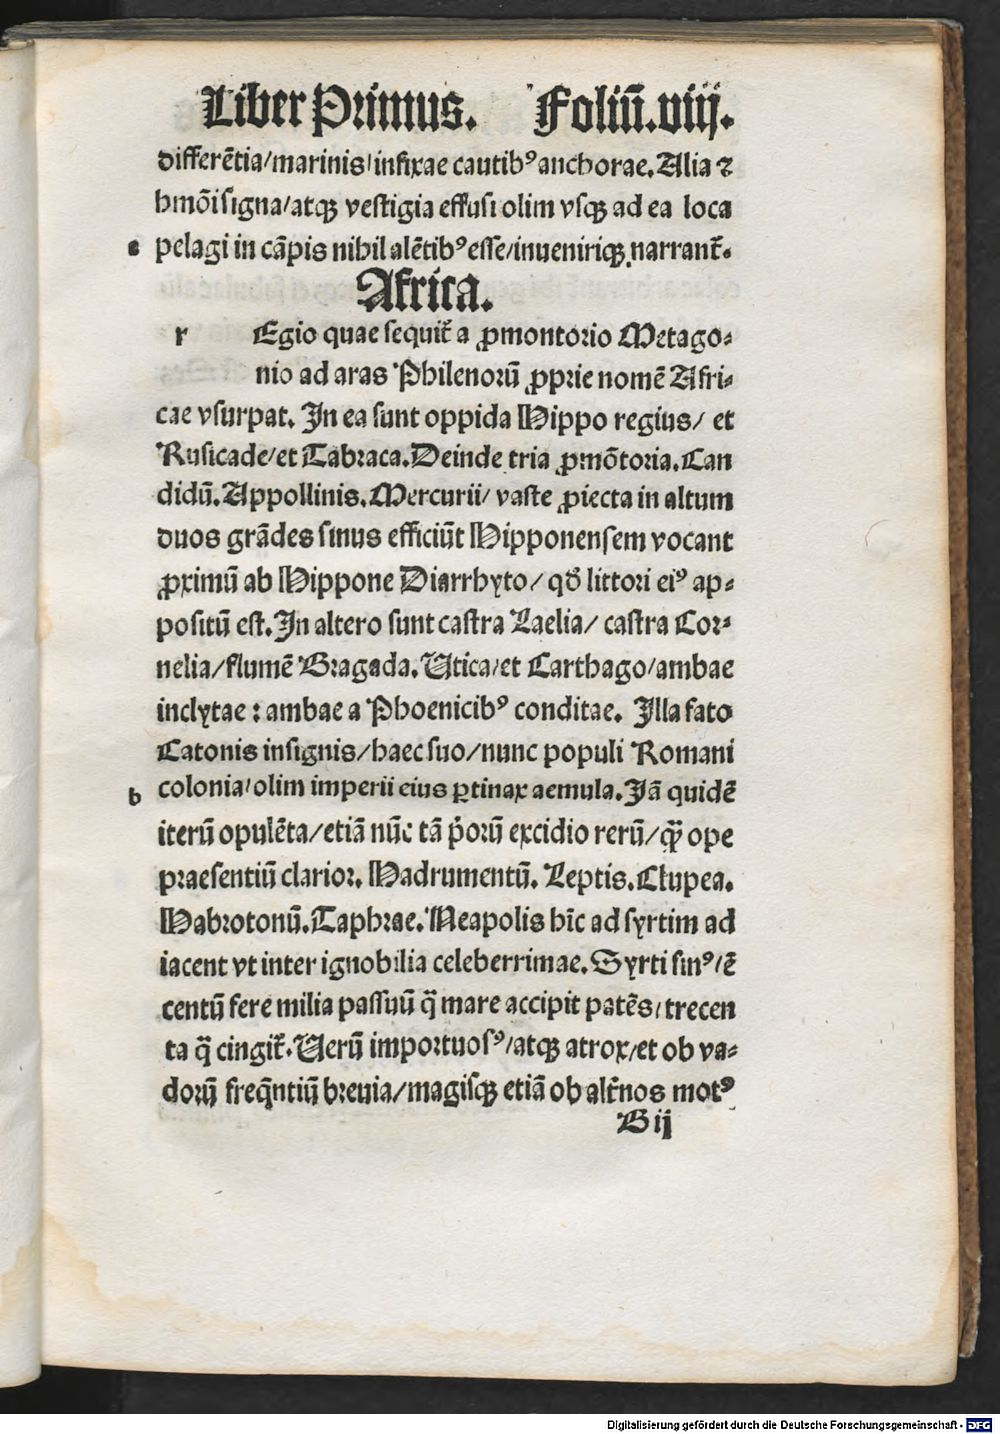 Liber Primus. Foliū.viij.
differētia/marinis/infixae cautibꝰ anchorae. Alia ⁊
hmōi signa/atqꝫ vestigia effusi olim vsqꝫ ad ea loca
pelagi in cāpis nihil alētibꝰ esse/inueniriqꝫ narrant̄.
Africa.
r Egio quae sequit̄ a ꝓmontorio Metago⸗
nio ad aras Philenorū ꝓprie nomē Afri⸗
cae vsurpat. In ea sunt oppida Hippo regius/ et
Rusicade/et Tabraca. Deinde tria ꝓmōtoria. Can
didū. Appollinis. Mercurii/ vaste ꝓiecta in altum
duos grādes sinus efficiūt Hipponensem vocant
ꝓximū ab Hippone Diarrhyto/ qd̄ littori eiꝰ ap⸗
positū est. In altero sunt castra Laelia/ castra Cor⸗
nelia/flumē Bragada. Utica/et Carthago/ambae
inclytae : ambae a Phoenicibꝰ conditae. Illa fato
Catonis insignis/haec suo/nunc populi Romani
b colonia/olim imperii eius ꝑtinax aemula. Iā quidē
iterū opulēta/etiā nūc tā p̓orū excidio rerū/qꝫ̄ ope
praesentiū clarior. Hadrumentū. Leptis. Clupea.
Habrotonū. Taphrae. Neapolis hīc ad syrtim ad
iacent vt inter ignobilia celeberrimae. Syrti sinꝰ/ē
centū fere milia passuū q̄ mare accipit patēs/trecen
ta q̄ cingit̄. Uerū importuosꝰ/atqꝫ atrox/et ob va⸗
dorū freq̄ntiū breuia/magisqꝫ etiā ob alt̄nos motꝰ
B ij
Digitalisierung gefördert durch die Deutsche Forschungsgemeinschaft - DFG